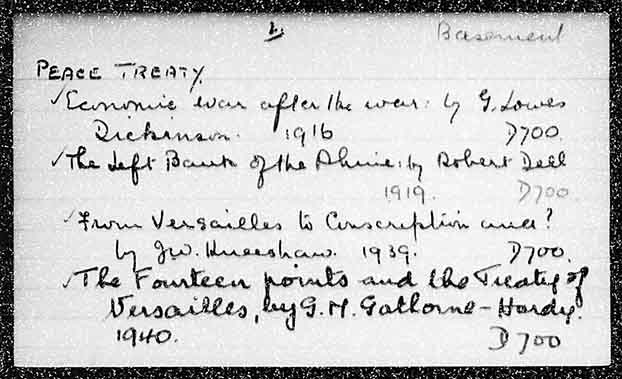 1.
Basement
PEACE TREATY.
✓Economic war after the war: by G. Lowes
Dickinson. 1916 D700.
✓The Left Bank of the Rhine: by Robert Dell
1919. D700.
✓From Versailles to Conscription and?
by J.W. Kneeshaw. 1939. D700.
✓The Fourteen points and the Treaty of
Versailles, by G. M. Gathorne-Hardy.
1940. D700